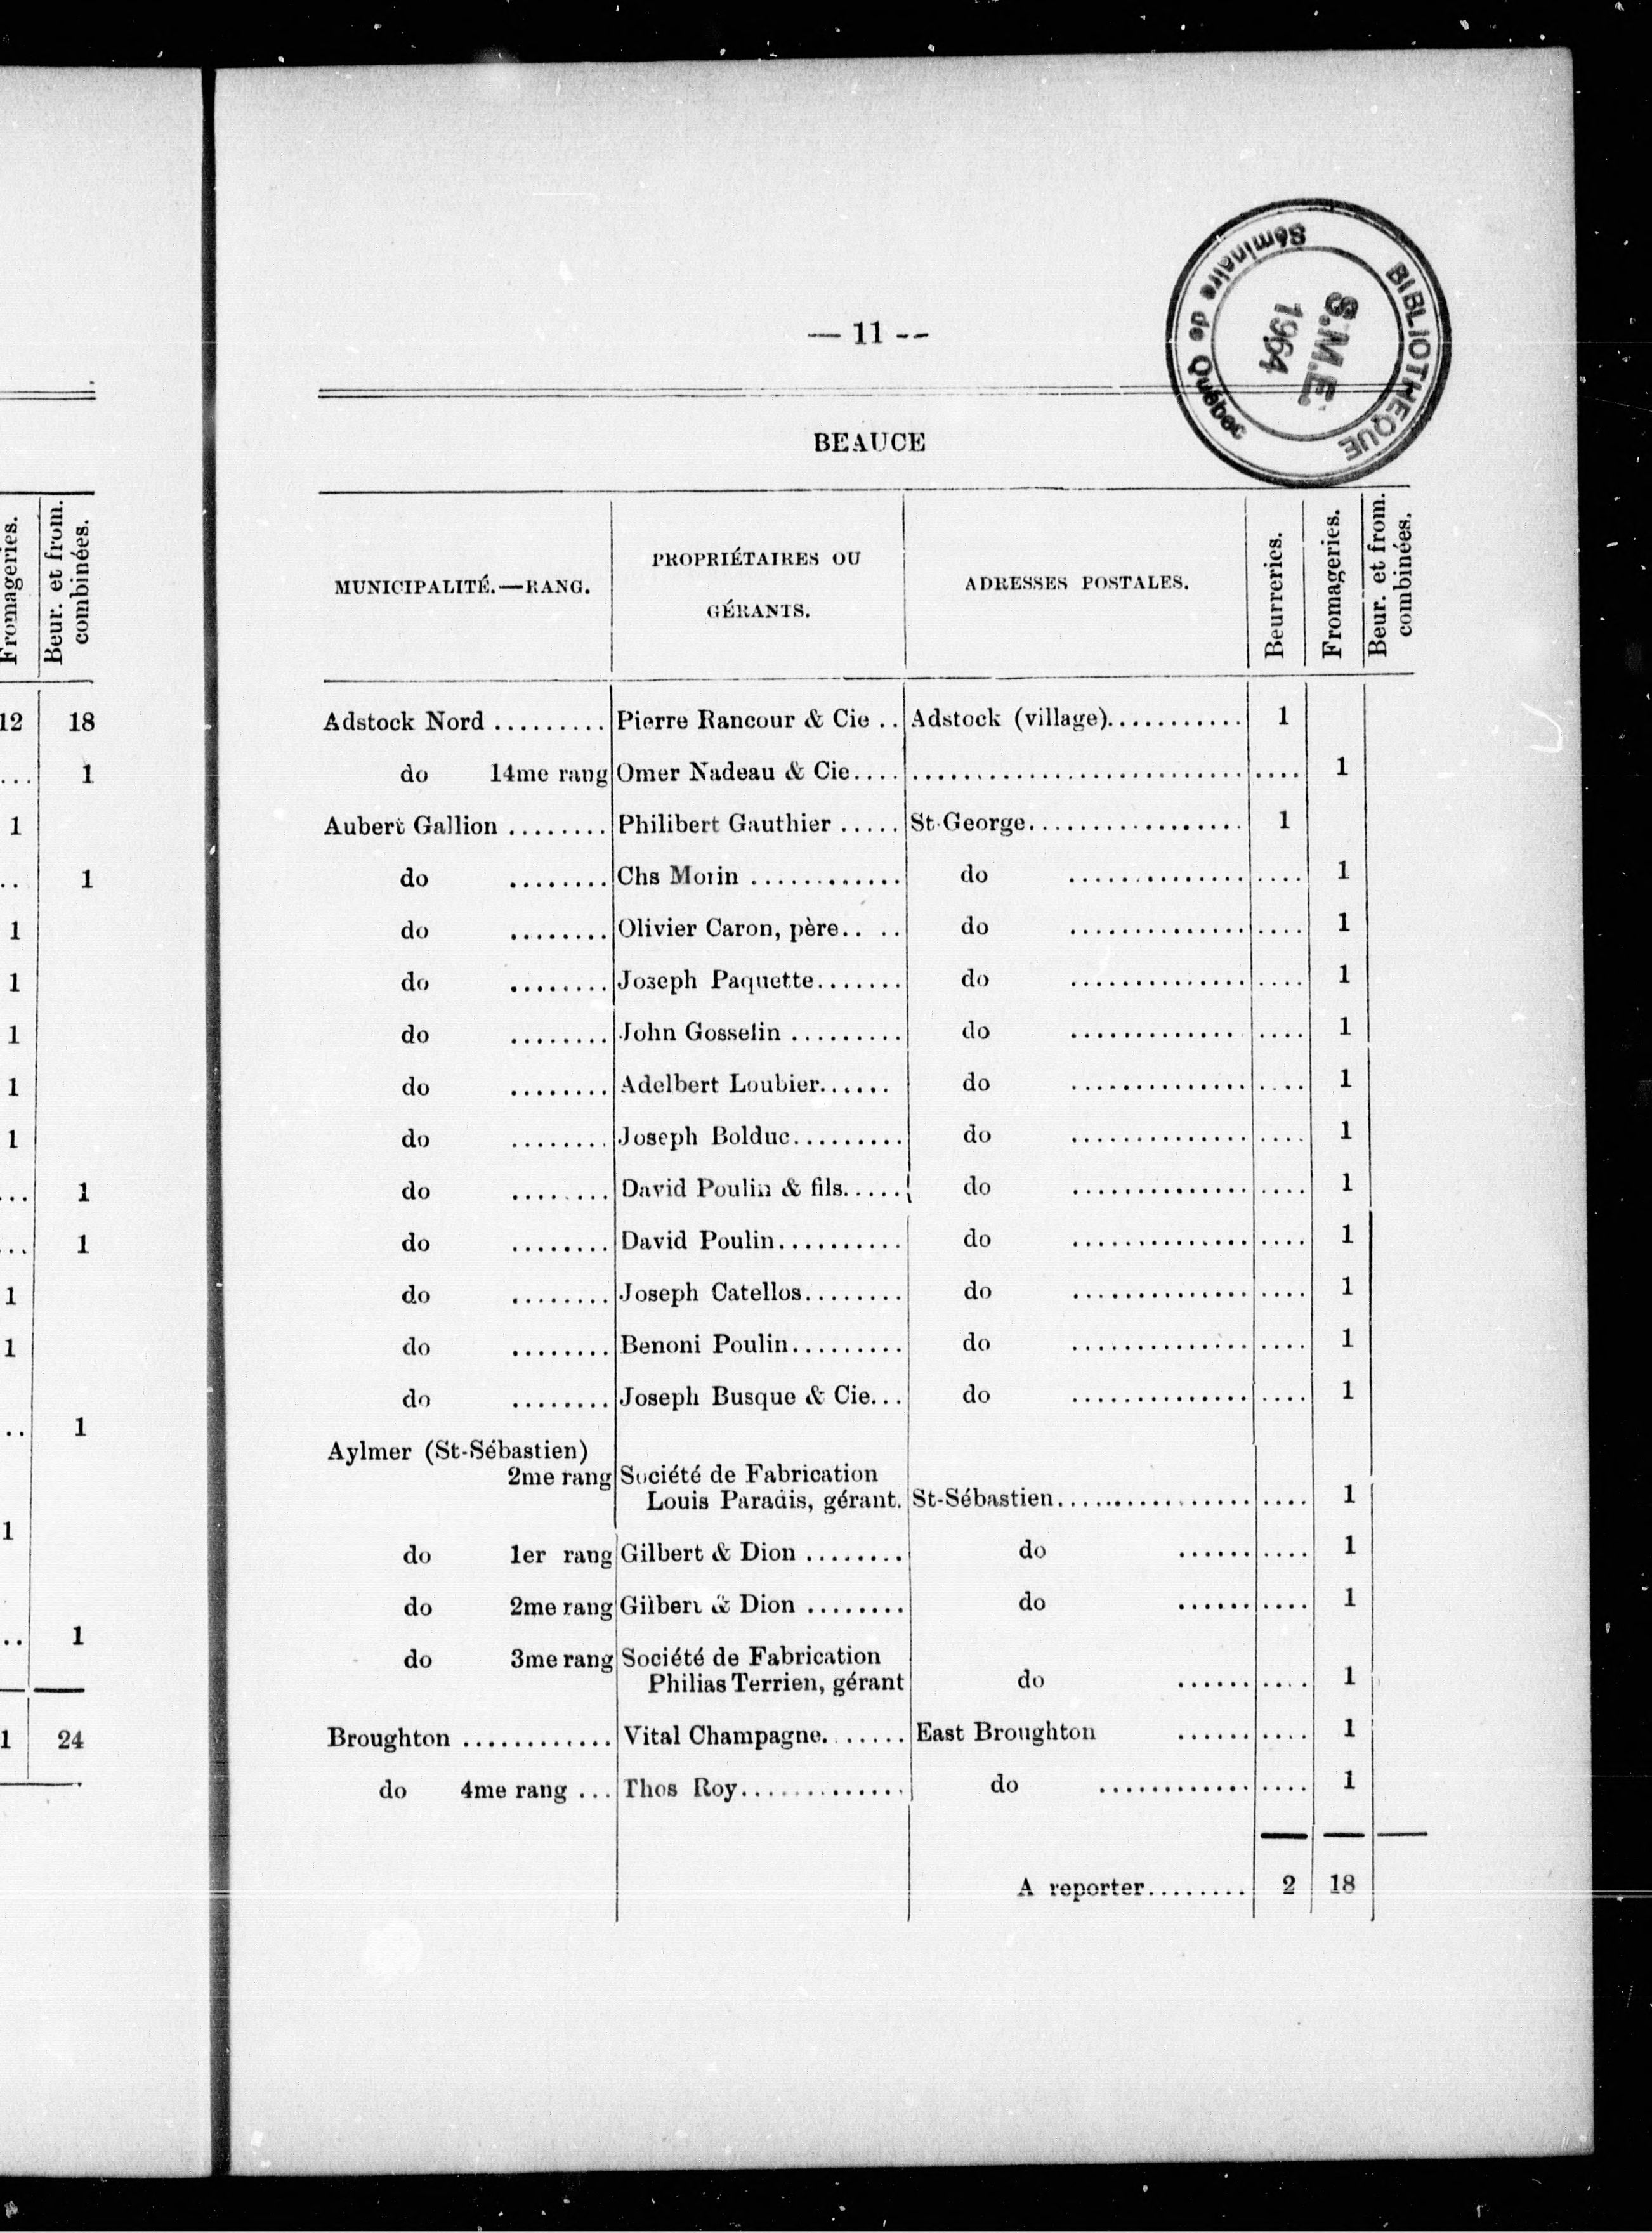 Fromageries.
Beur. et from. combinées.
12 18
... 1
1
.. 1
1
1
1
1
1
... 1
... 1
1
1
.. 1
1
.. 1
1 24
— 11 --
BIBLIOTHEQUE
S.M.E.
1964
Séminaire de Québec
BEAUCE
MUNICIPALITÉ.—RANG. PROPRIÉTAIRES OU GÉRANTS. ADRESSES POSTALES. Beurreries. Fromageries. Beur. et from. combinées.
Adstock Nord ......... Pierre Rancour & Cie .. Adstock (village)........... 1
do 14me rang Omer Nadeau & Cie.... ............................ .... 1
Aubert Gallion ........ Philibert Gauthier ..... St-George.................. 1
do ........ Chs Morin ............ do ............... .... 1
do ........ Olivier Caron, père.. .. do ............... .... 1
do ........ Joseph Paquette....... do ............... .... 1
do ........ John Gosselin ......... do ............... .... 1
do ........ Adelbert Loubier...... do ............... .... 1
do ........ Joseph Bolduc......... do ............... .... 1
do ........ David Poulin & fils..... do ............... .... 1
do ........ David Poulin.......... do ............... .... 1
do ........ Joseph Catellos........ do ............... .... 1
do ........ Benoni Poulin......... do ............... .... 1
do ........ Joseph Busque & Cie... do ............... .... 1
Aylmer (St-Sébastien)
2me rang Société de Fabrication
Louis Paradis, gérant. St-Sébastien................. .... 1
do 1er rang Gilbert & Dion ........ do ...... .... 1
do 2me rang Gilbert & Dion ........ do ...... .... 1
do 3me rang Société de Fabrication
Philias Terrien, gérant do ...... .... 1
Broughton ............ Vital Champagne....... East Broughton ...... .... 1
do 4me rang ... Thos Roy............. do ............ .... 1
A reporter........ 2 18